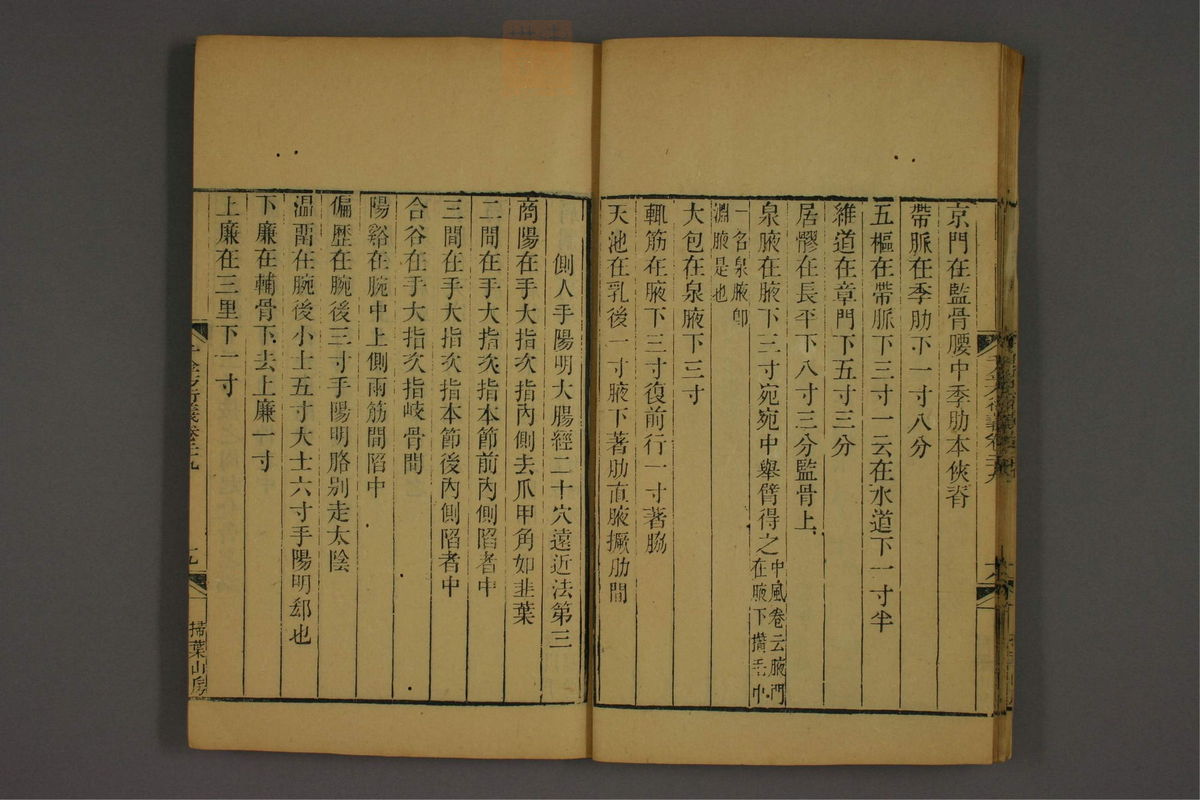 京門在監骨腰中季肋本俠脊
帶脈在季肋下一寸八分
五樞在帶脈下三寸一云在水道下一寸半
維道在章門下五寸三分
居髎在長平下八寸三分監骨上
泉腋在腋下三寸宛宛中舉臂得之中風卷云腋門在腋下攢毛中
一名泉腋卽淵腋是也
大包在泉腋下三寸
輒筋在腋下三寸復前行一寸著脇
天池在乳後一寸腋下著肋直腋撅肋間
側人手陽明大腸經二十穴遠近法第三
商陽在手大指次指內側去爪甲角如韭葉
二間在手大指次指本節前內側陷者中
三間在手大指次指本節後內側陷者中
合谷在手大指次指岐骨間
陽谿在腕中上側兩筋間陷中
偏歷在腕後三寸手陽明胳別走太陰
溫畱在腕後小士五寸大士六寸手陽明郄也
下廉在輔骨下去上廉一寸
上廉在三里下一寸
千金方衍義卷二十九
九
掃葉山房